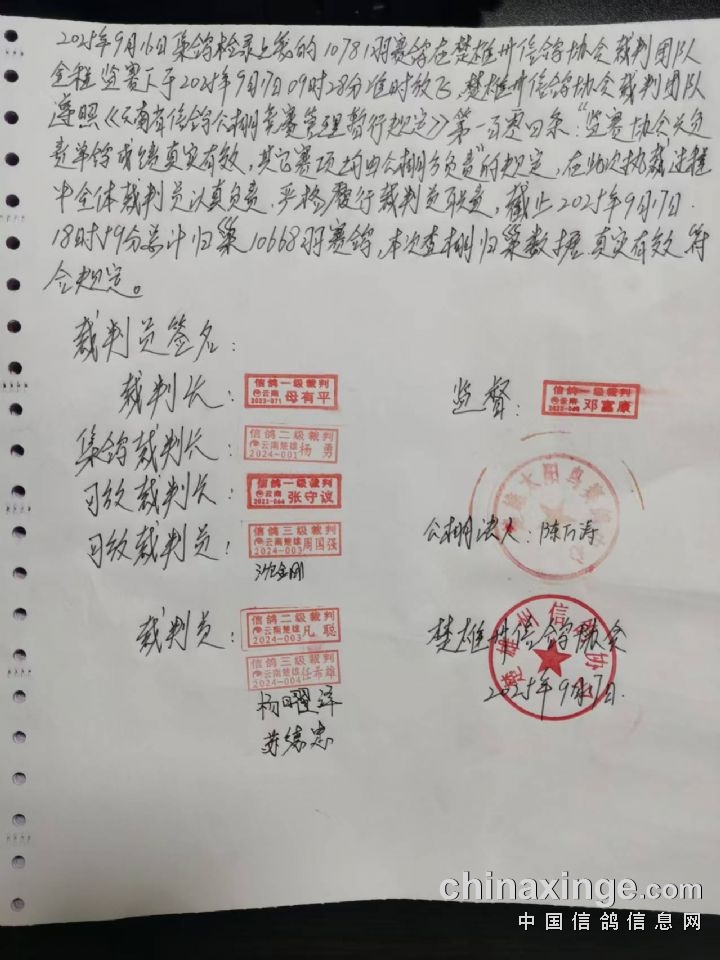 2025年9月16日集鸽检录上笼的10781羽赛鸽在楚雄州信鸽协会裁判团队
全程监赛下于2025年9月17日09时28分准时放飞,楚雄州信鸽协会裁判团队
遵照《云南省信鸽公棚竞赛管理暂行规定》第一百零四条:“监赛协会只负
责单鸽成绩真实有效,其它赛项均由公棚方负责”的规定,在此次执裁过程
中全体裁判员认真负责,严格履行裁判员职责,截止2025年9月17日
18时59分总计归巢10668羽赛鸽,本次查棚归巢数据真实有效,符
合规定。
裁判员签名:
裁判长:
信鸽一级裁判
云南
2023-071 母有平
监督:
信鸽一级裁判
云南
邓富康
集鸽裁判长:
信鸽二级裁判
云南楚雄
2024-001 杨勇
司放裁判长:
信鸽一级裁判
云南
张守议
司放裁判员:
信鸽三级裁判
云南楚雄
2024-003 周国强
沈金刚
公棚法人:陈万涛
裁判员:
信鸽二级裁判
云南楚雄
2024-003 凡聪
信鸽三级裁判
云南楚雄
2024-004 任希雄
杨曜泽
苏德忠
楚雄州信鸽协会
2025年9月17日.
楚雄州信鸽协会
chinaxinge.com
中国信鸽信息网